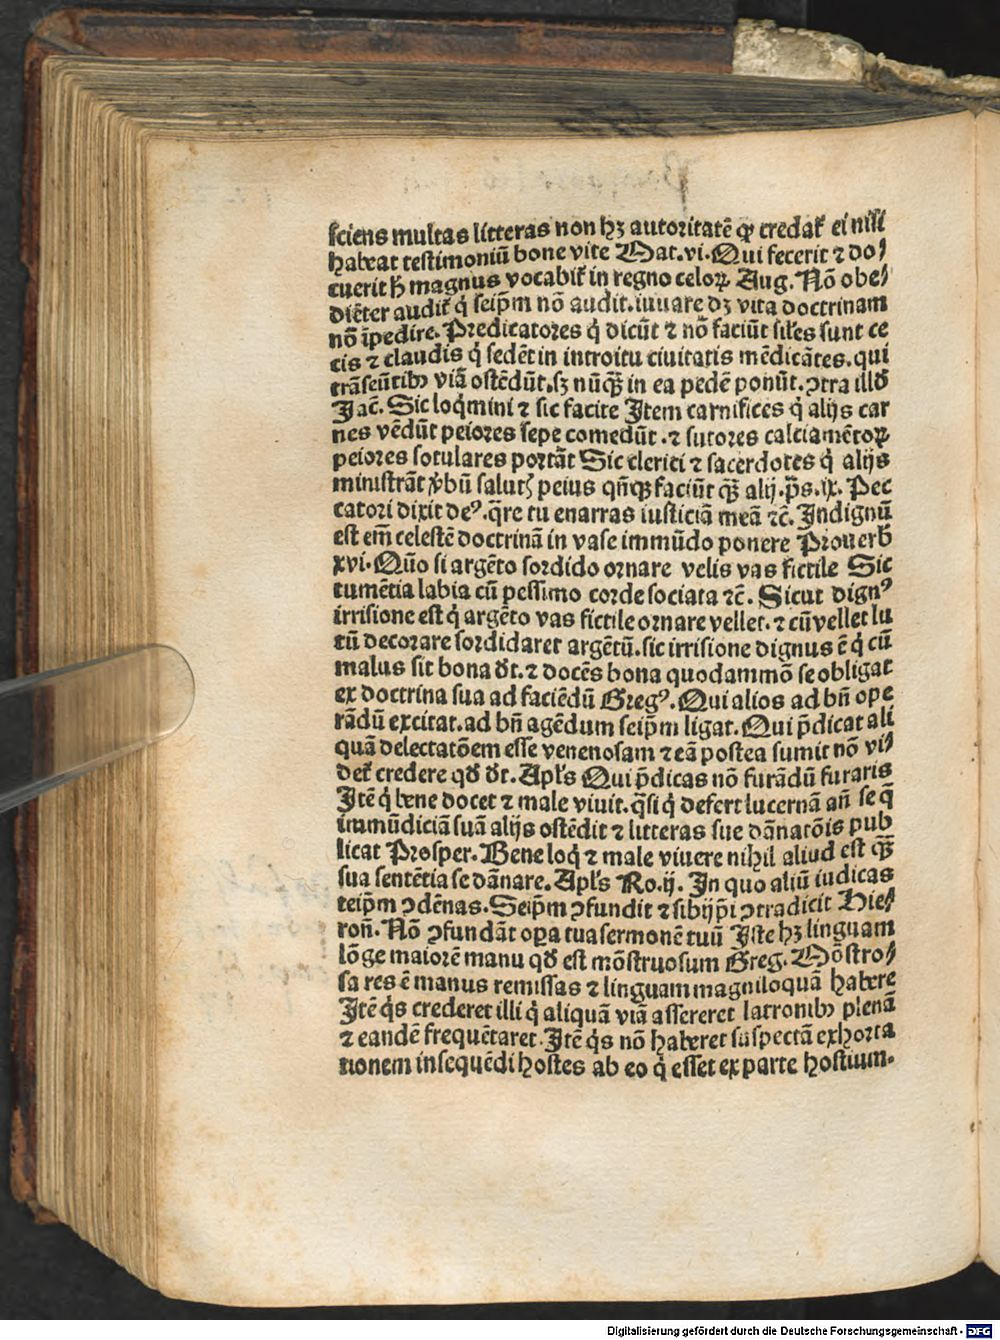 sciens multas litteras non hꝫ autoritatē ꝙ credat᷑ ei nisi
habeat testimoniū bone vite Mat.vi.Qui fecerit ⁊ do⸗
cuerit h̄ magnus vocabit᷑ in regno celoꝝ Aug. Nō obe⸗
diēter audit᷑ q̇ seip̄m nō audit.iuuare dꝫ vita doctrinam
nō īpedire. Predicatores q̇ dicūt ⁊ nō faciūt sil̄es sunt ce
cis ⁊ claudis q̇ sedēt in introitu ciuitatis mēdicātes.qui
trāseūtibꝰ viā ostēdūt.sꝫ nūqꝫ̄ in ea pedē ponūt.ꝯtra illd̄
Jac̄. Sic loq̇mini ⁊ sic facite Jtem carnifices q̇ alijs car
nes vēdūt peiores sepe comedūt.⁊ sutores calciamētoꝝ
peiores sotulares portāt Sic clerici ⁊ sacerdotes q̇ alijs
ministrāt v̄bū salutꝭ peius qn̄qꝫ faciūt qꝫ̄ alij.p̄s.ix. Pec
catori dixit deꝰ.q̄re tu enarras iusticiā meā ⁊c̄. Jndignū
est em̄ celestē doctrinā in vase immūdo ponere Prouerb̄
xvi. Quō si argēto sordido ornare velis vas fictile Sic
tumētia labia cū pessimo corde sociata ⁊c̄. Sicut dignꝰ
irrisione est q̇ argēto vas fictile ornare vellet.⁊ cū vellet lu
tū decorare sordidaret argētū.sic irrisione dignus ē q̇ cū
malus sit bona d̄t.⁊ docēs bona quodammō se obligat
ex doctrina sua ad faciēdū Gregꝰ. Qui alios ad bn̄ ope
rādū excitat.ad bn̄ agēdum seip̄m ligat. Qui p̄dicat ali
quā delectatōem esse venenosam ⁊ eā postea sumit nō vi⸗
det᷑ credere qd̄ d̄t. Apl̄s Qui p̄dicas nō furādū furaris
Jtē q̇ bene docet ⁊ male viuit.q̄si q̇ defert lucernā an̄ se q̄
immūdiciā suā alijs ostēdit ⁊ litteras sue dānatōis pub
licat Prosper. Bene loq̇ ⁊ male viuere nihil aliud est qꝫ̄
sua sentētia se dānare. Apl̄s Ro.ij. Jn quo aliū iudicas
teip̄m ꝯdēnas. Seip̄m ꝯfundit ⁊ sibijp̄i ꝯtradicit Hie⸗
ron̄. Nō ꝯfundāt oꝑa tua sermonē tuū Jste hꝫ linguam
lōge maiorē manu qd̄ est mōstruosum Greg. Mōstro⸗
sa res ē manus remissas ⁊ linguam magniloquā habere
Jtē q̇s crederet illi q̇ aliquā viā assereret latronibꝰ plenā
⁊ eandē frequētaret. Jtē q̇s nō haberet suspectā exhorta
tionem insequēdi hostes ab eo q̇ esset ex parte hostium.
Digitalisierung gefördert durch die Deutsche Forschungsgemeinschaft - DFG